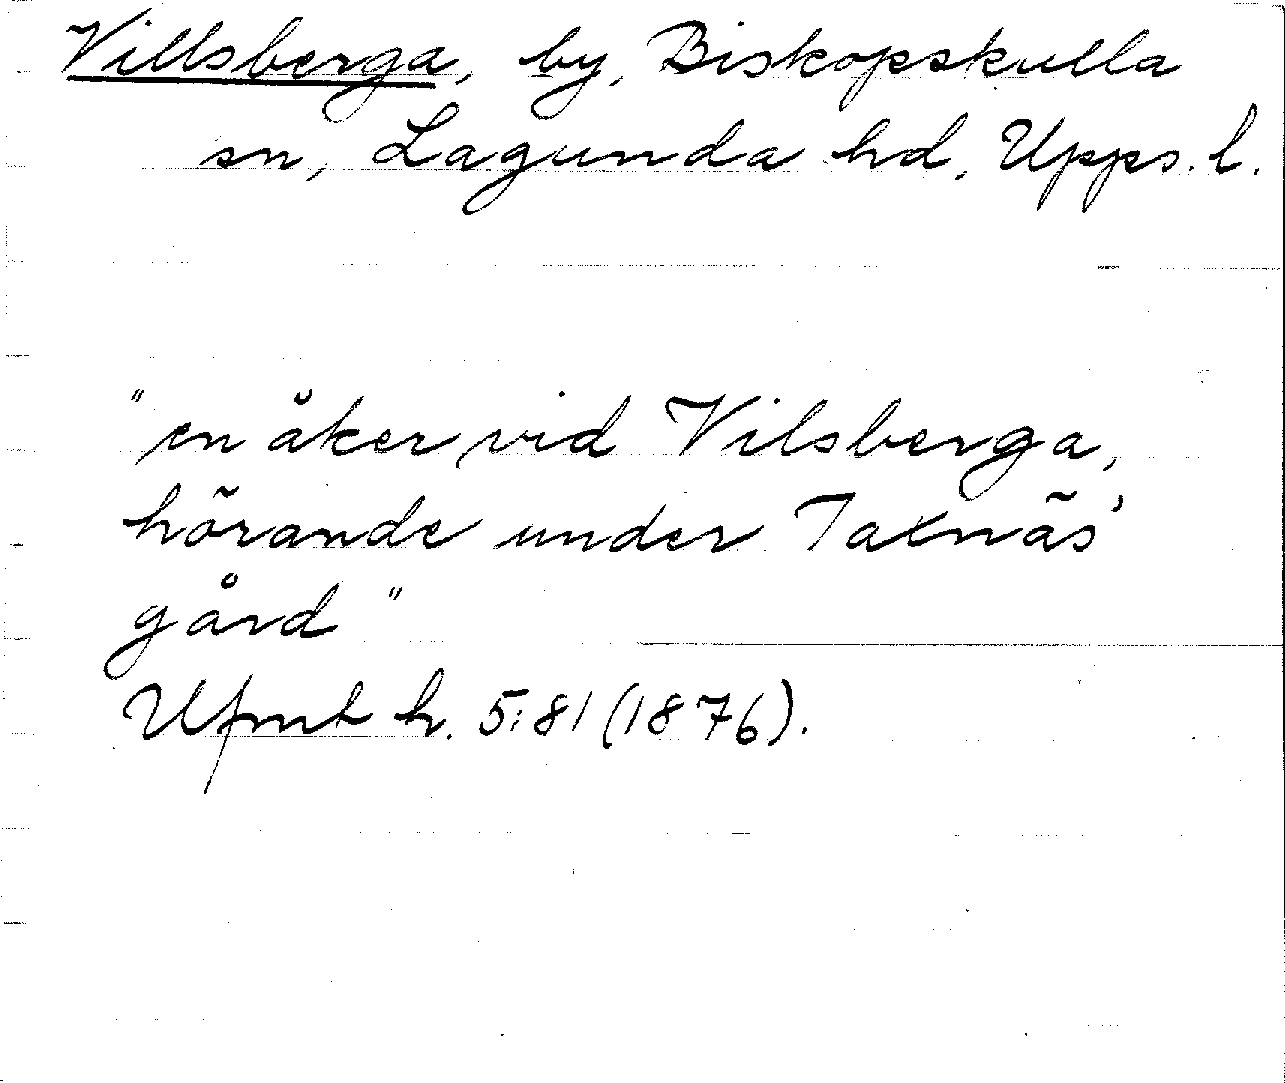 Villsberga, by, Biskopskulla
sn, Lagunda hd, Upps. l.
"en åker vid Vilsberga,
hörande under Taxnäs'
gård"
Ufmt h. 5:81 (1876).